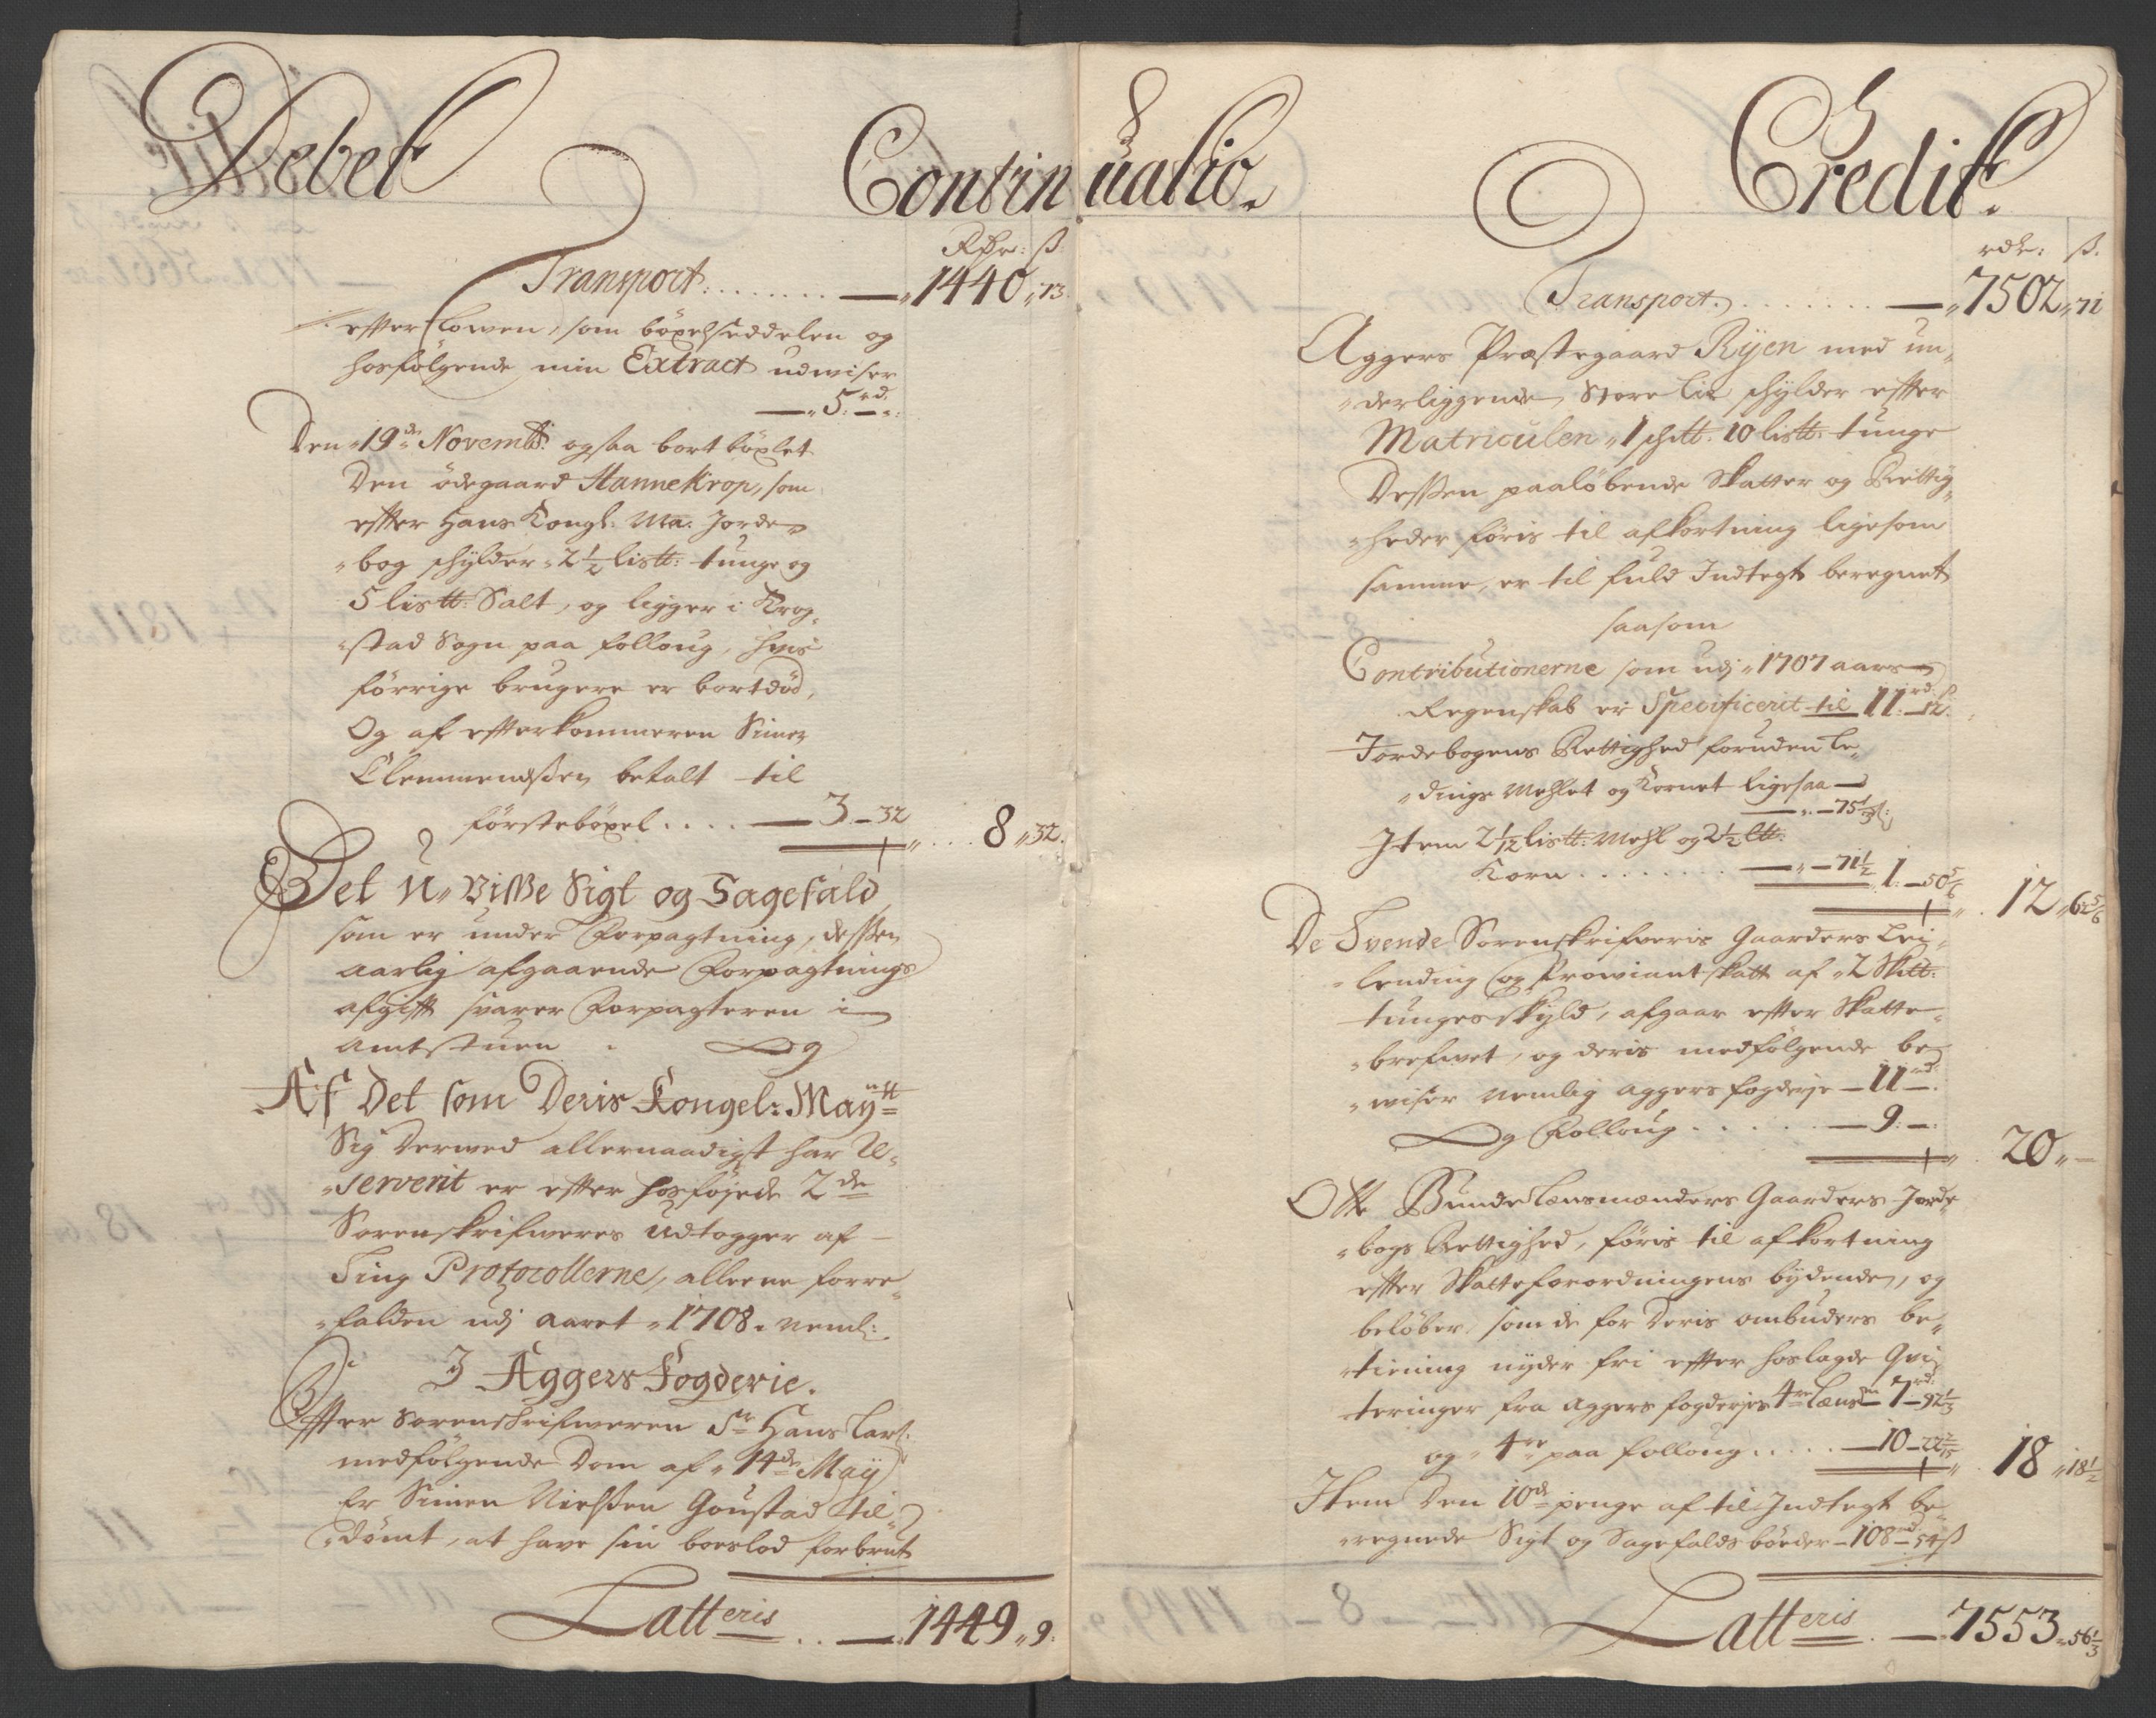 Debet Continuatio. Credit.
Rdr: ß
Transport. . . . . . . . 1440 „ 73.
effter Lowen, som böxelseddelen og
hosfölgende min Extract udwiser
5 rd: –„:
Den 19de Novembr: ogsaa bort böxlet
Den ödegaard StanneKrop, som
effter Hans Kongl: Ma: Jorde-
„bog schylder 2½ list℔: tunge og
5 list℔: Salt, og ligger i Krog-
„stad Sogn paa Folloug, hvis
förrige brugere er bortdöd,
Og af effterkommeren Simen
Clemmendsen betalt til
förstebøxel . . . . 3 – 32
8 „ 32.
Det U-Visse Sigt og Sagefald
som er under Forpagtning, dessen
aarlig afgaaende Forpagtnings
afgifft svarer Forpagteren i
Amtstuen. Og
Af Det som Deris Kongel: Mayestt
Sig dermed allernaadigst har Re-
„servent er effter hosföjede 2de
Sorenskrifweres udtogger af
Ting Protocollerne, alleene forre-
„falden udj aaret 1708. neml:
J Aggers Fogderie.
Effter Sorenskrifweren Sr Hans Lars:
medfölgende Dom af 14de Maij
Er Simen Nielsen Goustad til-
„dømt, at have sin boeslod forbrut
Latteris . . 1449 „ 9:
rdr: ß.
Transport. . . . . . . 7502 „ 71
Aggers Præstegaard Ryen med un-
„derliggende Store Lie schylder effter
Matriculen 1 schtt. 10 listt: tunge
Dessen paaløbende Skatter og Rettig-
„heder föris til afkortning ligesom
samme, er til fuld Indtegt beregnet
saasom
Contributionerne som udj 1707 aars
Regenskab er Specificerit til 11 rd – 12 ß:
Jordebogens Rettighed foruden Le-
„dings Mehlet og Kornet ligesaa
– „ – 75⅓ ß:
Jtem 2 1/12 listt: Mehl og 2½ ltt:
Korn . . . . . . . . – „ – 71½ 1: – 50⅚
12 „ 62⅚
De Tvende Sorenskrifweris Gaarders Lei-
„lending og Prowiant skatt af 2 Skt℔:
tunges skyld, afgaar effter Skatte-
„brefwet, og deris medfölgende be-
„wiser Nemlig Aggers fogderje – 11 rd –
Og Folloug . . . . . – 9: –:
20 „ –
Otte Bunde Lænsmænders Gaarders Jorde-
„bogs Rettighed, föris til afkortning
effter Skatteforordningens bydende, og
beløber, som de for Deris ombuders be-
„tiening nyder fri effter hoslagde Qvi-
teringer fra Aggers fogderjes 4re Lænsm 7 rd: – 92⅓
og 4re paa Folloug . . . . . 10 – 22 2/15
18 „ 18½
Jtem Den 10de penge af til Indtegt be-
„regnede Sigt og Sagefalds böeder – 108 rd – 54 ß
Latteris . . 7553 „ 56⅓